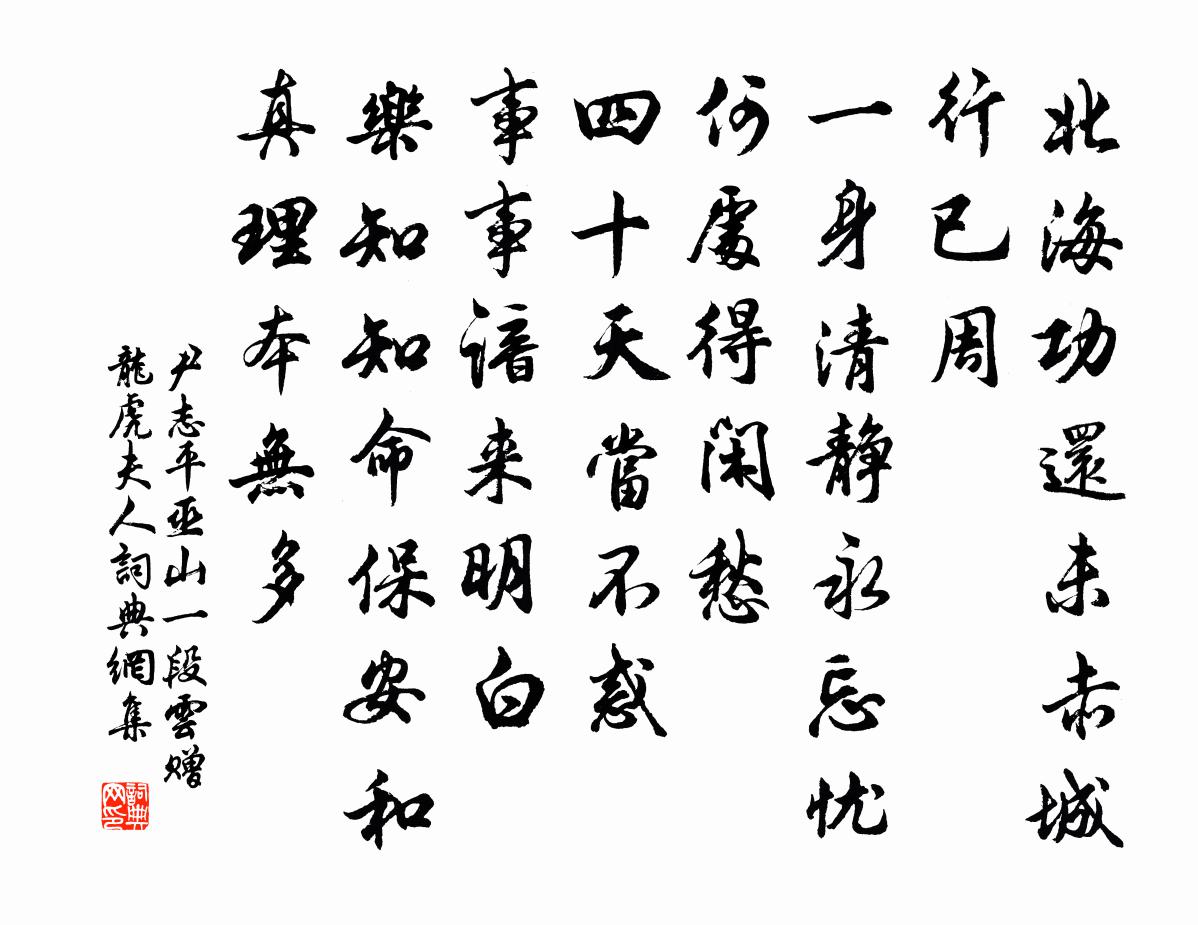 北海功還未赤城
行已周
一身清靜永忘忧
何處得閑愁
四十天當不惑
事事諳来明白
樂知知命保安和
真理本無多
尹志平巫山一段雲赠
龍虎夫人詞典網集
詞典网印